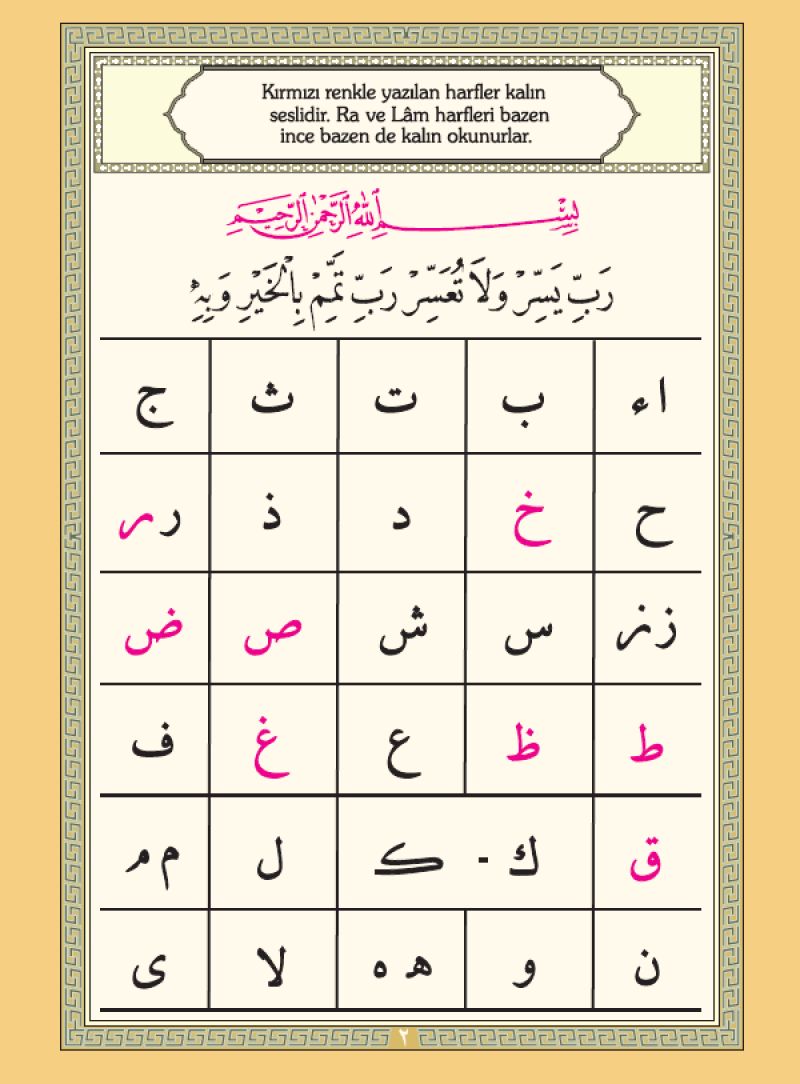 Kırmızı renkle yazılan harfler kalın
seslidir. Ra ve Lâm harfleri bazen
ince bazen de kalın okunurlar.
بِسْمِ اللهِ الرَّحْمٰنِ الرَّحِيمِ
رَبِّ يَسِّرْ وَلَا تُعَسِّرْ رَبِّ تَمِّمْ بِالْخَيْرِ وَبِهِ
ا ء ب ت ث ج
ح خ د ذ ر ر
ز ز س ش ص ض
ط ظ ع غ ف
ق ك - ک ل م م
ن و ه ه لا ى
٢